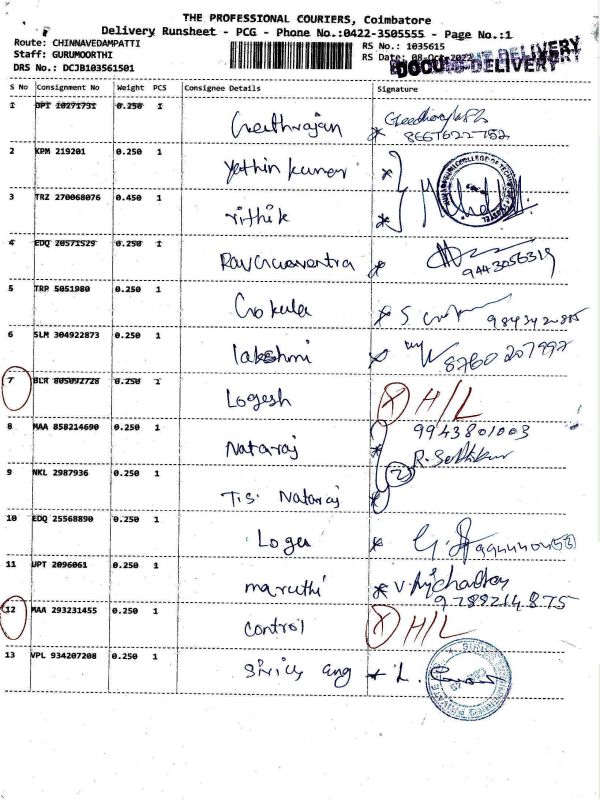 THE PROFESSIONAL COURIERS, Coimbatore
Delivery Runsheet - PCG - Phone No.:0422-3505555 - Page No.:1
Route: CHINNAVEDAMPATTI
Staff: GURUMOORTHI
DRS No.: DCJB103561501
RS No.: 1035615
RS Date: 08-Oct-2022
DOCU DELIVERY
S No Consignment No Weight PCS Consignee Details Signature
1 DPI 10291731 0.250 1 Geethrajan
8667622752
2 KPM 219201 0.250 1 Yathin kumar
3 TRZ 270068076 0.450 1 rithik
4 EDQ 20571529 0.250 1
9443056319
5 TRP 5051980 0.250 1 Gokula
6 SLM 304922873 0.250 1 lakshmi
8760 207997
7 BLR 805092728 0.250 1 Logesh X H/L
8 MAA 858214690 0.250 1 Nataraj
9943801003
9 NKL 2987936 0.250 1 T.S. Nataraj 2
10 EDQ 25568890 0.250 1
11 UPT 2096061 0.250 1 maruthi
9789214875
12 MAA 293231455 0.250 1 control X H/L
13 VPL 934207208 0.250 1